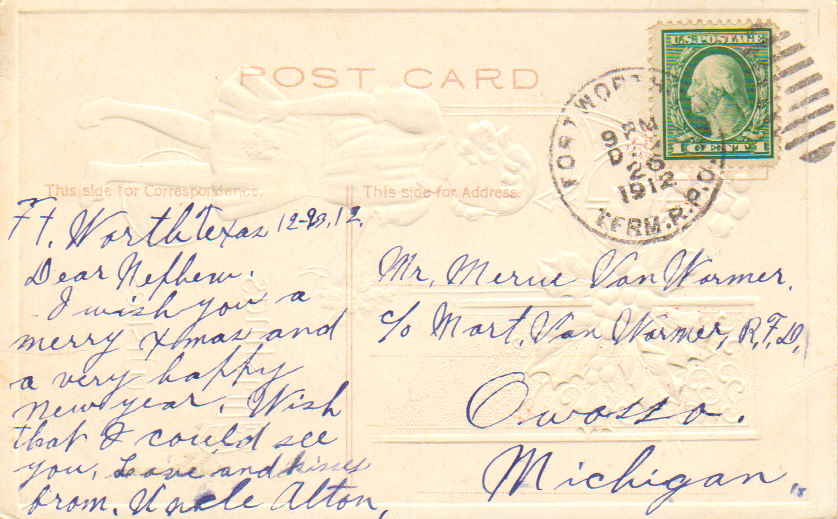 POST CARD
U.S. POSTAGE
1 CENT 1
FORT WORTH
9 PM
D 20
1912
TERM. R.P.O.
This side for Correspondence.
This side for Address.
Ft. Worth Texas 12-20, 12.
Dear Nephew.
I wish you a
merry Xmas and
a very happy
New year. Wish
that I could see
you, Love and kisses
from, Uncle Alton,
Mr. Merve Van Wormer.
c/o Mort. Van Wormer, R,F,D,
Owosso.
Michigan